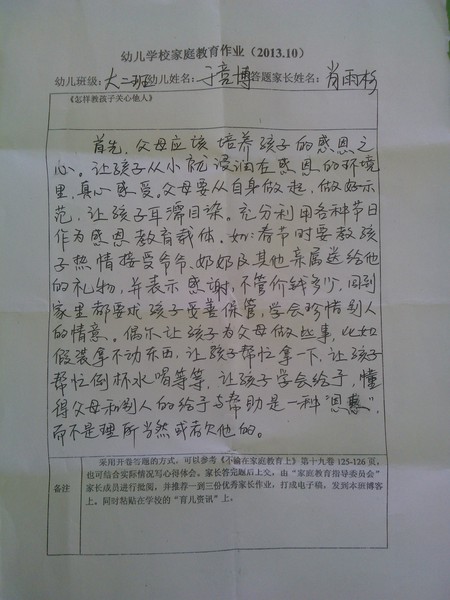 幼儿学校家庭教育作业（2013.10）
幼儿班级：大二班幼儿姓名：于竞博答题家长姓名：肖雨杉
《怎样教孩子关心他人》
首先，父母应该培养孩子的感恩之
心。让孩子从小就浸润在感恩的环境
里，真心感受。父母要从自身做起，做好示
范，让孩子耳濡目染。充分利用各种节日
作为感恩教育载体。如：春节时要教孩
子热情接受爷爷、奶奶及其他亲属送给他
的礼物，并表示感谢，不管价钱多少，回到
家里都要求孩子妥善保管，学会珍惜别人
的情意。偶尔让孩子为父母做些事，比如
假装拿不动东西，让孩子帮忙拿一下，让孩子
帮忙倒杯水喝等等，让孩子学会给予，懂
得父母和别人的给予与帮助是一种“恩惠”，
而不是理所当然或有欠他的。
备注
采用开卷答题的方式，可以参考《不输在家庭教育上》第十九卷 125-126 页，
也可结合实际情况写心得体会。家长答完题后上交，由“家庭教育指导委员会”
家长成员进行批阅，并推荐一到三份优秀家长作业，打成电子稿，发到本班博客
上。同时粘贴在学校的“育儿资讯”上。